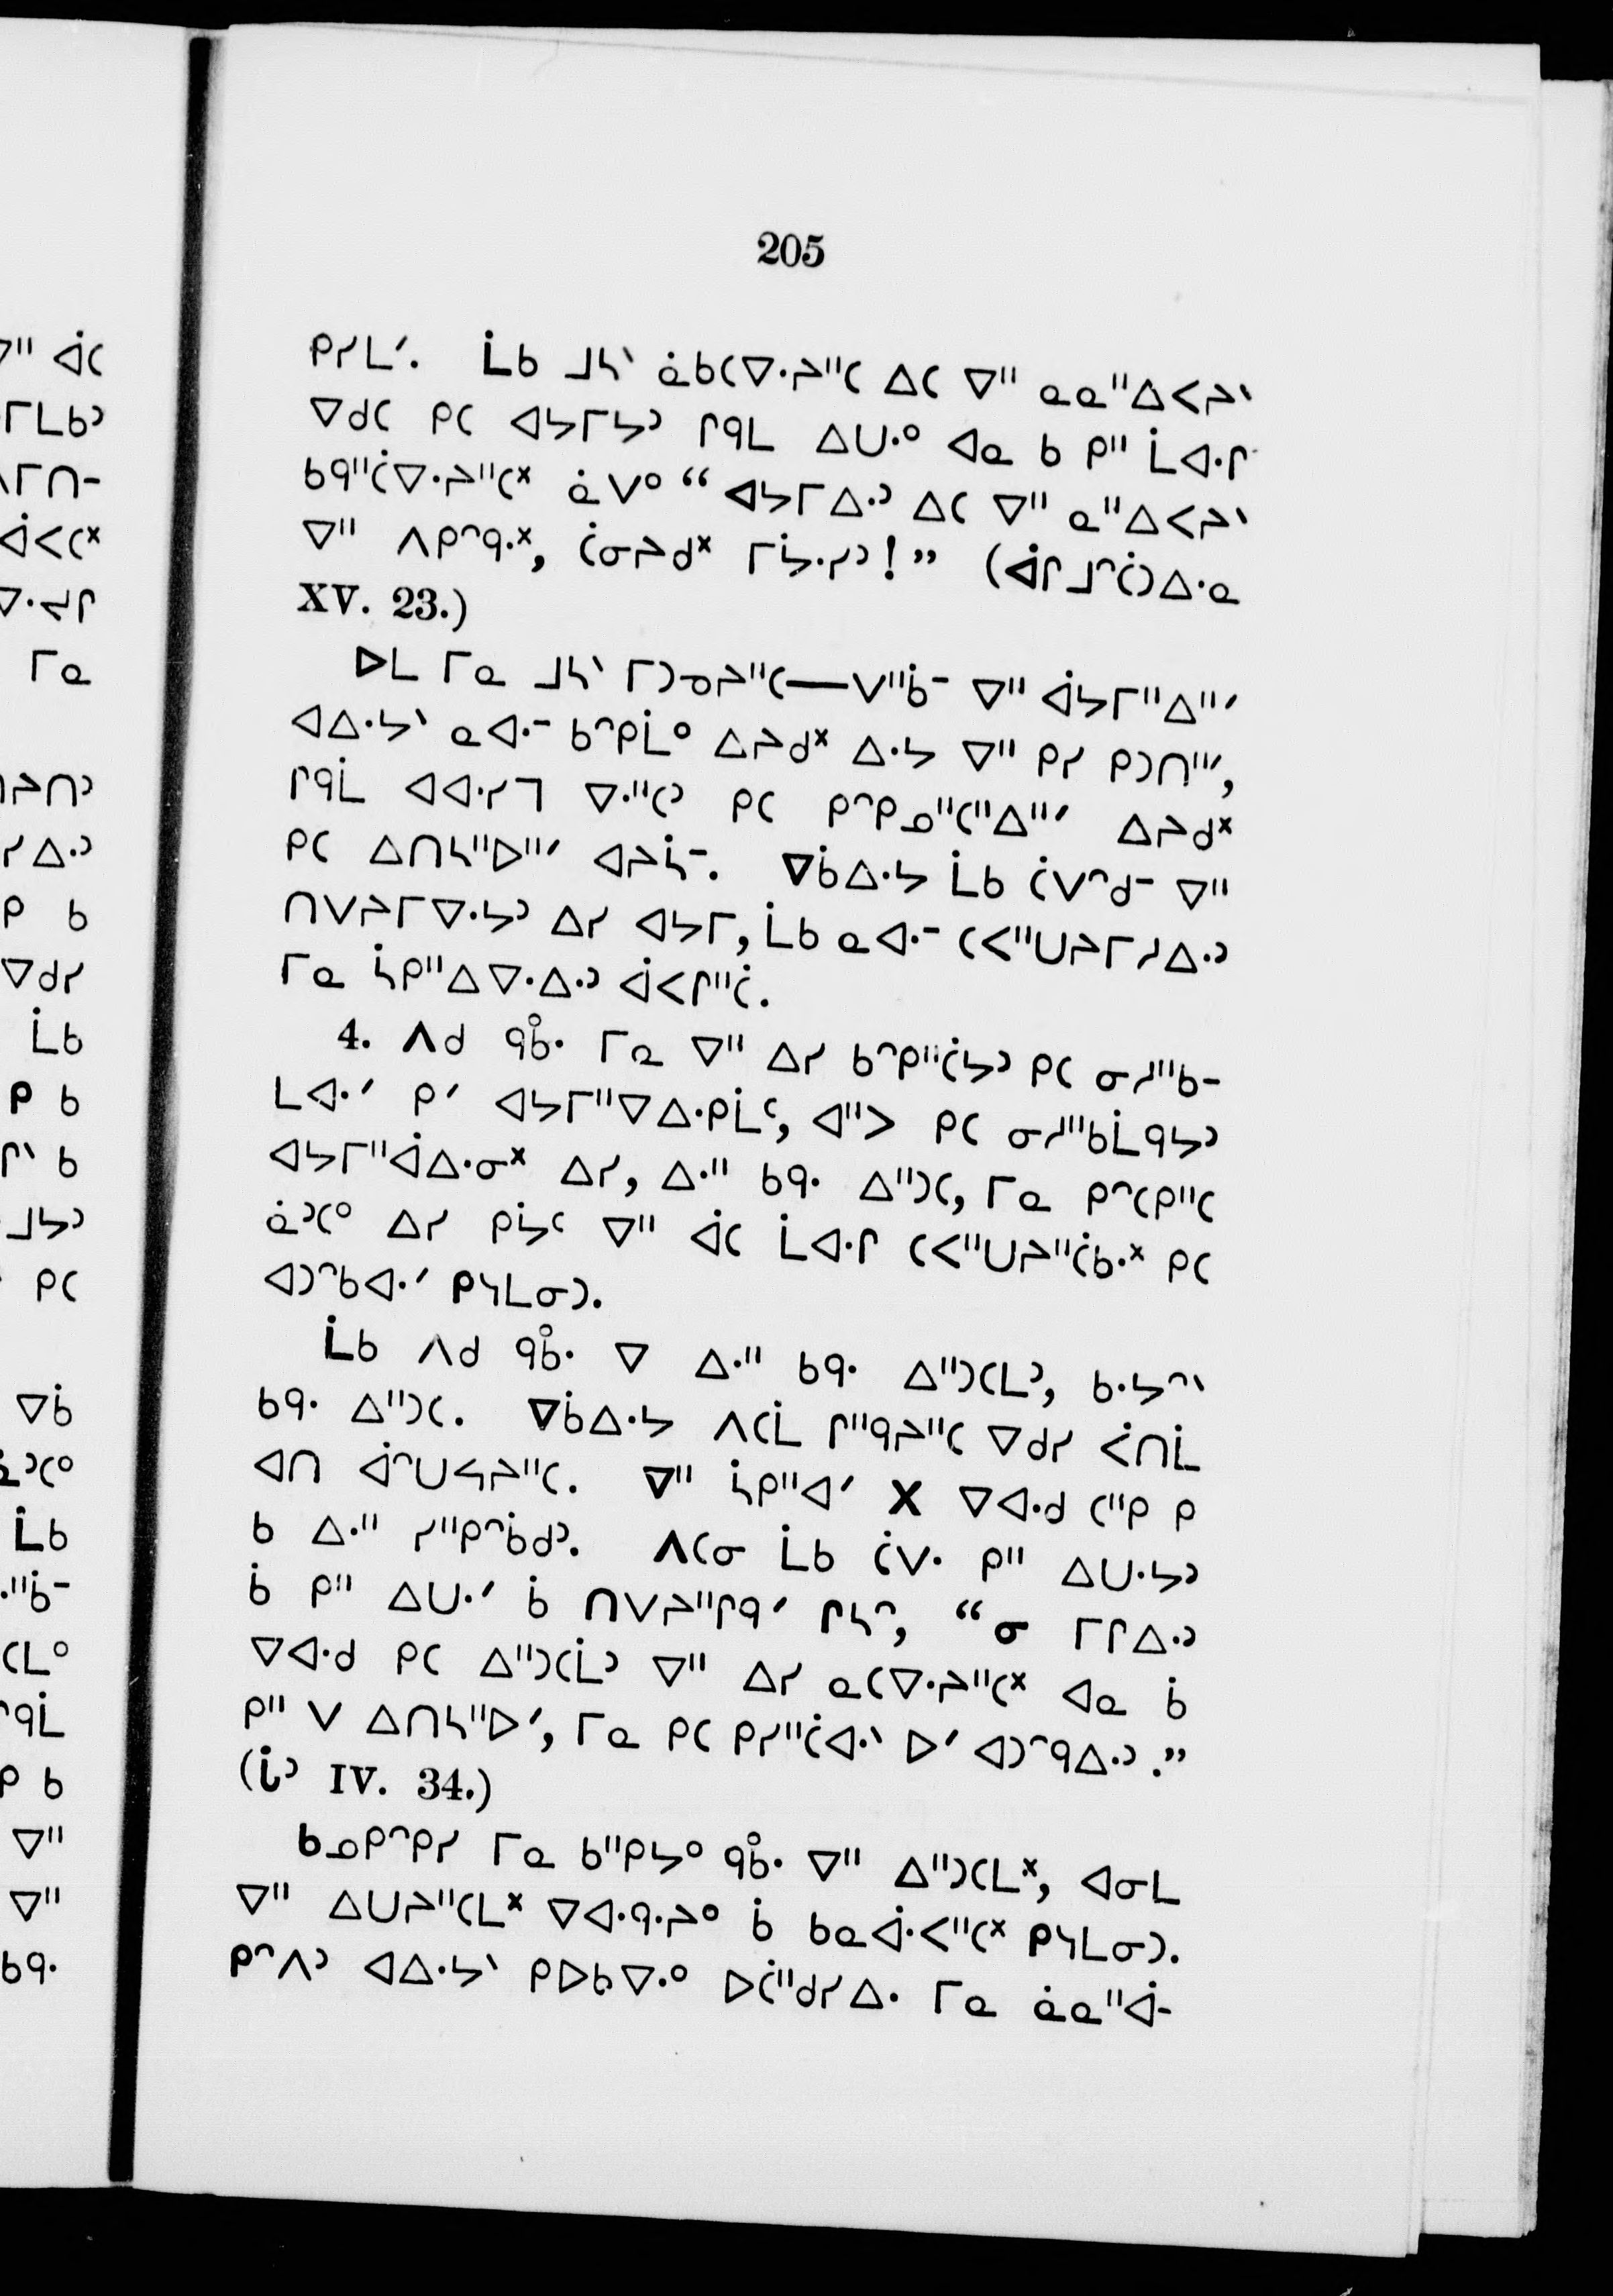 205
ᑭᓯᒪᐟ. ᒫᑲ ᒧᓴᐠ ᓈᑲᑕᐁᐧᔨᐦᑕ ᐃᑕ ᐁᐦ ᓇᓇᐦᐃᐸᔨᐠ
ᐁᑯᑕ ᑭᑕ ᐊᔭᒥᔭᐣ ᒋᑫᒪ ᐃᑌᐧᐤ ᐊᓇ ᑲ ᑭᐦ ᒫᐊᐧᒋ
ᑲᑫᐦᑖᐁᐧᔨᐦᑕᕽ ᓈᐯᐤ “ ᐊᔭᒥᐃᐧᐣ ᐃᑕ ᐁᐦ ᓇᐦᐃᐸᔨᐠ
ᐁᐦ ᐱᑭᐢᑫᐧᕽ, ᑖᓂᔨᑯᕽ ᒥᔮᐧᓯᐣ!” (ᐋᒋᒧᐢᑖᑐᐃᐧᓇ
XV. 23.)
ᐅᒪ ᒥᓇ ᒧᓴᐠ ᒥᑐᓀᔨᐦᑕ—ᐯᐦᑳᐨ ᐁᐦ ᐋᔭᒥᐦᐃᐦᐟ
ᐊᐃᐧᔭᐠ ᓇᐊᐧᐨ ᑲᐢᑭᒫᐤ ᐃᔨᑯᕽ ᐃᐧᔭ ᐁᐦ ᑭᓯ ᑭᑐᑎᐦᐟ,
ᒋᑫᒫ ᐊᐊᐧᓯᒣ ᐁᐧᐦᑕᐣ ᑭᑕ ᑭᐢᑭᓄᐦᑕᐦᐃᐦᐟ ᐃᔨᑯᕽ
ᑭᑕ ᐃᑎᓴᐦᐅᐦᐟ ᐊᔨᓵᐨ. ᐁᑳᐃᐧᔭ ᒫᑲ ᑖᐯᐢᑯᐨ ᐁᐦ
ᑎᐯᔨᒥᐁᐧᔭᐣ ᐃᓯ ᐊᔭᒥ, ᒫᑲ ᓇᐊᐧᐨ ᑕᐸᐦᑌᔨᒥᓱᐃᐧᐣ
ᒥᓇ ᓵᑭᐦᐃᐁᐧᐃᐧᐣ ᐋᐸᒋᐦᑖ.
4. ᐱᑯ ᑫᑳᐧᐤ ᒥᓇ ᐁᐦ ᐃᓯ ᑲᐢᑭᐦᑖᔭᐣ ᑭᑕ ᓂᓱᐦᑲ-
ᒪᐊᐧᐟ ᑭᐟ ᐊᔭᒥᐦᐁᐃᐧᑭᒫᑦ, ᐊᐦᐳ ᑭᑕ ᓂᓱᐦᑲᒫᑫᔭᐣ
ᐊᔭᒥᐦᐋᐃᐧᓂᕽ ᐃᓯ, ᐃᐧᐦ ᑲᑫᐧ ᐃᐦᑐᑕ, ᒥᓇ ᑭᐢᑕᑭᐦᑕ
ᓈᐣᑕᐤ ᐃᓯ ᑭᔭᑦ ᐁᐦ ᐋᑕ ᒫᐊᐧᒋ ᑕᐸᐦᑌᔨᐦᑖᑲᐧᕽ ᑭᑕ
ᐊᑐᐢᑲᐊᐧᐟ ᑭᓭᒪᓂᑐ.
ᒫᑲ ᐱᑯ ᑫᑳᐧᐤ ᐁ ᐃᐧᐦ ᑲᑫᐧ ᐃᐦᑐᑕᒪᐣ, ᑲᐧᔭᐢᐠ
ᑲᑫᐧ ᐃᐦᑐᑕ. ᐁᑳᐃᐧᔭ ᐱᑕᒫ ᒋᐦᑫᔨᐦᑕ ᐁᑯᓯ ᐹᑎᒫ
ᐊᑎ ᐋᐢᑌᓭᔨᐦᑕ. ᐁᐦ ᓵᑭᐦᐊᐟ X ᐁᐊᐧᑯ ᑕᐦᑭ ᑭ
ᑲ ᐃᐧᐦ ᓯᐦᑭᐢᑳᑯᐣ. ᐱᑕᓂ ᒫᑲ ᑖᐯᐧ ᑭᐦ ᐃᑌᐧᔭᐣ
ᑳ ᑭᐦ ᐃᑌᐧᐟ ᑳ ᑎᐯᔨᐦᒋᑫᐟ ᒋᓴᐢ, “ ᓂ ᒥᒋᐃᐧᐣ
ᐁᐊᐧᑯ ᑭᑕ ᐃᐦᑐᑕᒫᐣ ᐁᐦ ᐃᓯ ᓇᑕᐁᐧᔨᐦᑕᕽ ᐊᓇ ᑳ
ᑭᐦ ᐯ ᐃᑎᓴᐦᐅᐟ, ᒥᓇ ᑭᑕ ᑭᓯᐦᑖᐊᐧᐠ ᐅᐟ ᐊᑐᐢᑫᐃᐧᐣ.”
(ᒑᐣ IV. 34.)
ᑲᓄᑭᐢᑭᓯ ᒥᓇ ᑲᐦᑭᔭᐤ ᑫᑳᐧᐤ ᐁᐦ ᐃᐦᑐᑕᒪᕽ, ᐊᓂᒪ
ᐁᐦ ᐃᑌᔨᐦᑕᒪᕽ ᐁᐊᐧᑫᐧᔨᐤ ᑳ ᑲᓇᐋᐧᐸᐦᑕᕽ ᑭᓭᒪᓂᑐ.
ᑭᐢᐱᐣ ᐊᐃᐧᔭᐠ ᑭᐅᑲᐁᐧᐤ ᐅᑖᐦᑯᓯᐃᐧ ᒥᓇ ᓈᓇᐦᐋ-